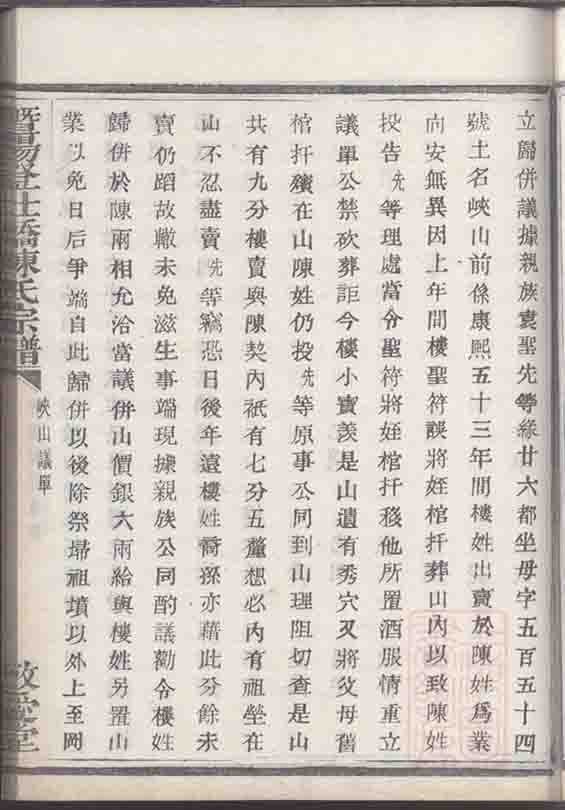 立歸併議據親族袁聖先等緣廿六都坐毋字五百五十四
號土名峽山前係康熙五十三年間樓姓出賣於陳姓爲業
向安無異因上年間樓聖符誤將姪棺扦葬山內以致陳姓
投告先等理處當令聖符將姪棺扦移他所置酒服情重立
議單公禁砍葬詎今樓小寳羨是山遺有秀穴又將父母舊
棺扦殯在山陳姓仍投先等原事公同到山理阻切查是山
共有九分樓賣與陳契內祇有七分五釐想必內有祖塋在
山不忍盡賣先等竊恐日後年遠樓姓裔孫亦藉此分餘未
賣仍蹈故轍未免滋生事端現據親族公同酌議勸令樓姓
歸併於陳兩相允洽當議併山價銀六兩給與樓姓另置山
業以免日后爭端自此歸併以後除祭埽祖墳以外上至岡
暨陽登仕橋陳氏宗譜
峽山議單
敬愛堂